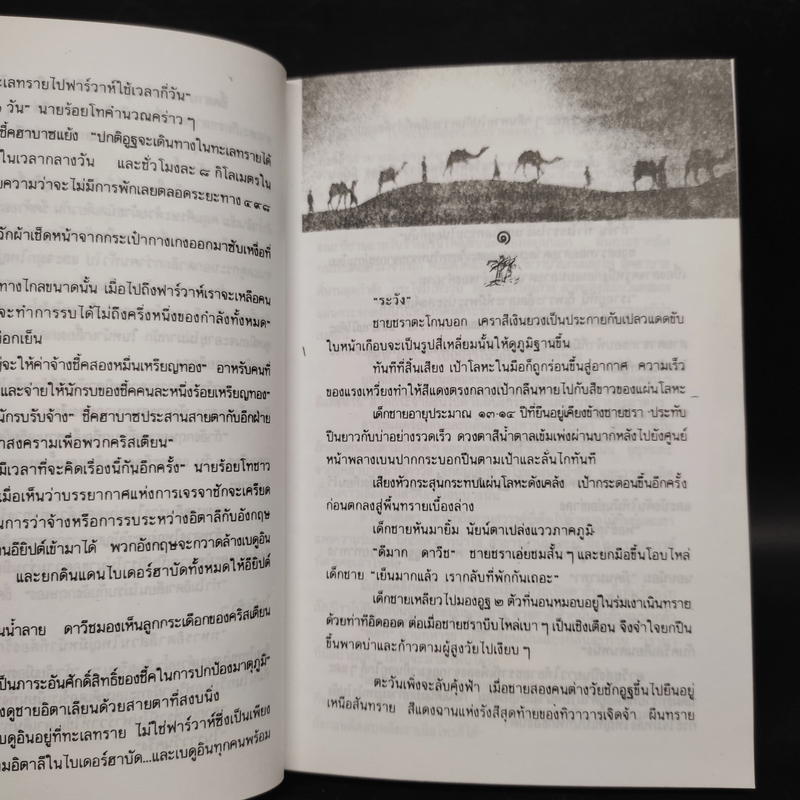 ะเลทรายไปฟาร์วาห์ใช้เวลากี่วัน"
วัน" นายร้อยโทคำนวณคร่าว ๆ
ซี้คฮาบาซแย้ง "ปกติอูฐจะเดินทางในทะเลทรายได้
ในเวลากลางวัน และชั่วโมงละ ๘ กิโลเมตรใน
ยความว่าจะไม่มีการพักเลยตลอดระยะทาง ๔๙๘
วักผ้าเช็ดหน้าจากกระเป๋ากางเกงออกมาซับเหงื่อที่
ทางไกลขนาดนั้น เมื่อไปถึงฟาร์วาห์เราจะเหลือคน
จะทำการรบได้ไม่ถึงครึ่งหนึ่งของกำลังทั้งหมด"
ยือกเย็น
ญ่จะให้ค่าจ้างซี้คสองหมื่นเหรียญทอง" อาหรับคนที่
และจ่ายให้นักรบของซี้คคนละหนึ่งร้อยเหรียญทอง"
นักรบรับจ้าง" ซี้คฮาบาซประสานสายตากับอีกฝ่าย
ำสงครามเพื่อพวกคริสเตียน"
มีเวลาที่จะคิดเรื่องนี้กันอีกครั้ง" นายร้อยโทชาว
เมื่อเห็นว่าบรรยากาศแห่งการเจรจาชักจะเครียด
นการว่าจ้างหรือการรบระหว่างอิตาลีกับอังกฤษ
านอียิปต์เข้ามาได้ พวกอังกฤษจะกวาดล้างเบดูอิน
และยกดินแดนไบเดอร์ฮาบัดทั้งหมดให้อียิปต์
นน้ำลาย ดาวีชมองเห็นลูกกระเดือกของคริสเตียน
เป็นภาระอันศักดิ์สิทธิ์ของซี้คในการปกป้องมาตุภูมิ"
งดูชายอิตาเลียนด้วยสายตาที่สงบนิ่ง
บดูอินอยู่ที่ทะเลทราย ไม่ใช่ฟาร์วาห์ซึ่งเป็นเพียง
ามอิตาลีในไบเดอร์ฮาบัด...และเบดูอินทุกคนพร้อม
๑
"ระวัง"
ชายชราตะโกนบอก เคราสีเงินยวงเป็นประกายกับเปลวแดดขับ
ใบหน้าเกือบจะเป็นรูปสี่เหลี่ยมนั้นให้ดูภูมิฐานขึ้น
ทันทีที่สิ้นเสียง เป้าโลหะในมือก็ถูกร่อนขึ้นสู่อากาศ ความเร็ว
ของแรงเหวี่ยงทำให้สีแดงตรงกลางเป้ากลืนหายไปกับสีขาวของแผ่นโลหะ
เด็กชายอายุประมาณ ๑๓-๑๔ ปีที่ยืนอยู่เคียงข้างชายชรา ประทับ
ปืนยาวกับบ่าอย่างรวดเร็ว ดวงตาสีน้ำตาลเข้มเพ่งผ่านบากหลังไปยังศูนย์
หน้าพลางเบนปากกระบอกปืนตามเป้าและลั่นไกทันที
เสียงหัวกระสุนกระทบแผ่นโลหะดังเคล้ง เป้ากระดอนขึ้นอีกครั้ง
ก่อนตกลงสู่พื้นทรายเบื้องล่าง
เด็กชายหันมายิ้ม นัยน์ตาเปล่งแววภาคภูมิ
"ดีมาก ดาวีช" ชายชราเอ่ยชมสั้น ๆ และยกมือขึ้นโอบไหล่
เด็กชาย "เย็นมากแล้ว เรากลับที่พักกันเถอะ"
เด็กชายเหลียวไปมองอูฐ ๒ ตัวที่นอนหมอบอยู่ในร่มเงาเนินทราย
ด้วยท่าทีอิดออด ต่อเมื่อชายชราบีบไหล่เบา ๆ เป็นเชิงเตือน จึงจำใจยกปืน
ขึ้นพาดบ่าและก้าวตามผู้สูงวัยไปเงียบ ๆ
ตะวันเพิ่งจะลับคุ้งฟ้า เมื่อชายสองคนต่างวัยชักอูฐขึ้นไปยืนอยู่
เหนือสันทราย สีแดงฉานแห่งรังสีสุดท้ายของทิวาวารเจิดจ้า ผืนทราย